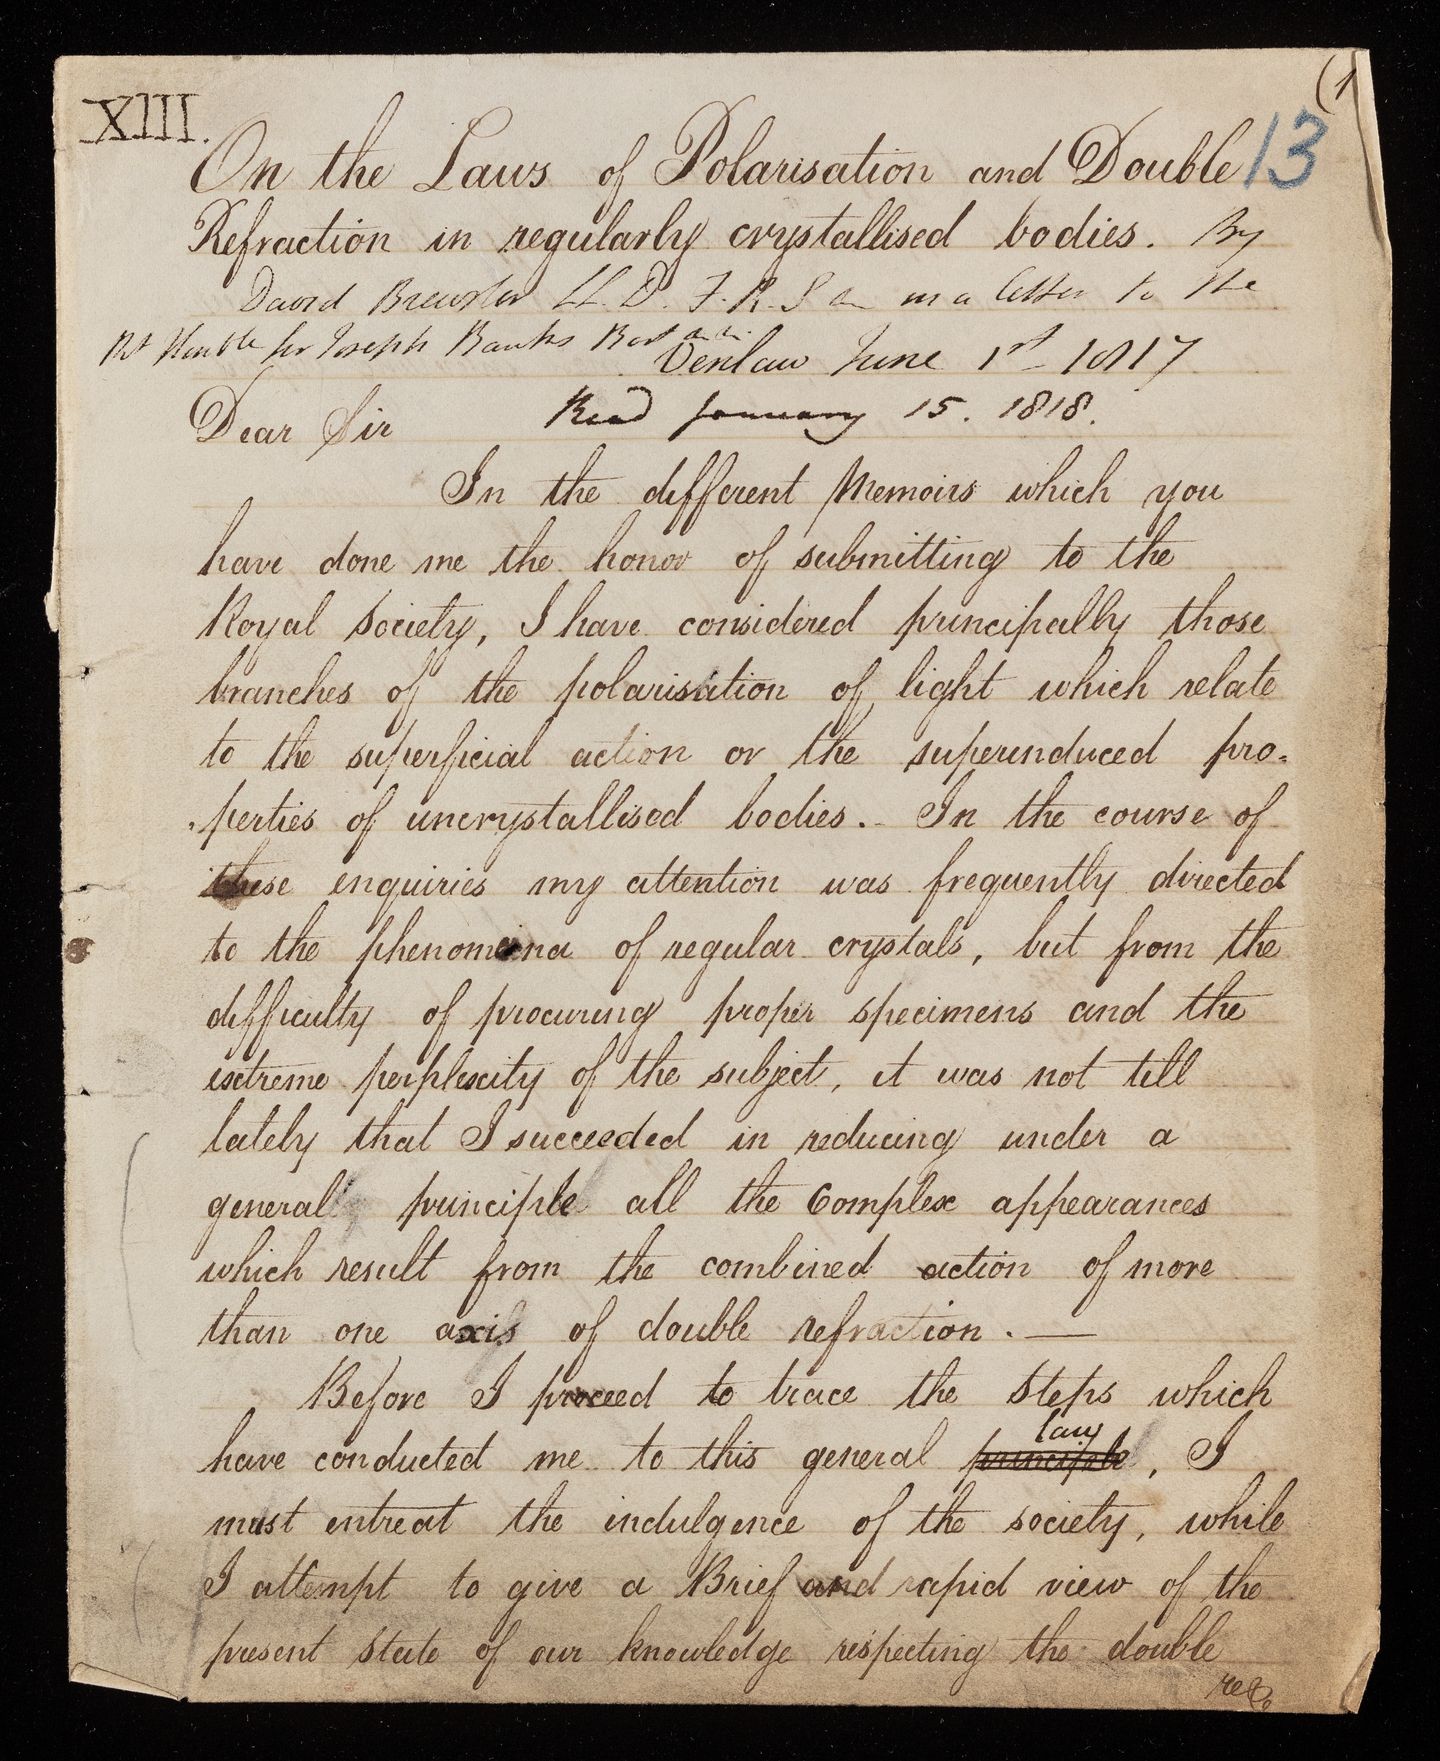 (1
XIII.
13
On the Laws of Polarisation and Double
Refraction in regularly crystallised bodies. By
David Brewster LL.D. F.R.S. in a letter to the
Rt Honble Sir Joseph Banks Bart
Venlaw June 1st 1817
Read January 15. 1818.
Dear Sir
In the different Memoirs which you
have done me the honor of submitting to the
Royal Society, I have considered principally those
branches of the polarisation of light which relate
to the superficial action or the superinduced pro-
perties of uncrystallised bodies. In the course of
these enquiries my attention was frequently directed
to the phenomena of regular crystals, but from the
difficulty of procuring proper specimens and the
extreme perplexity of the subject, it was not till
lately that I succeeded in reducing under a
general principle all the Complex appearances
which result from the combined action of more
than one axis of double refraction. —
Before I proceed to trace the Steps which
law
have conducted me to this general principle, I
must entreat the indulgence of the society, while
I attempt to give a Brief and rapid view of the
present state of our knowledge respecting the double